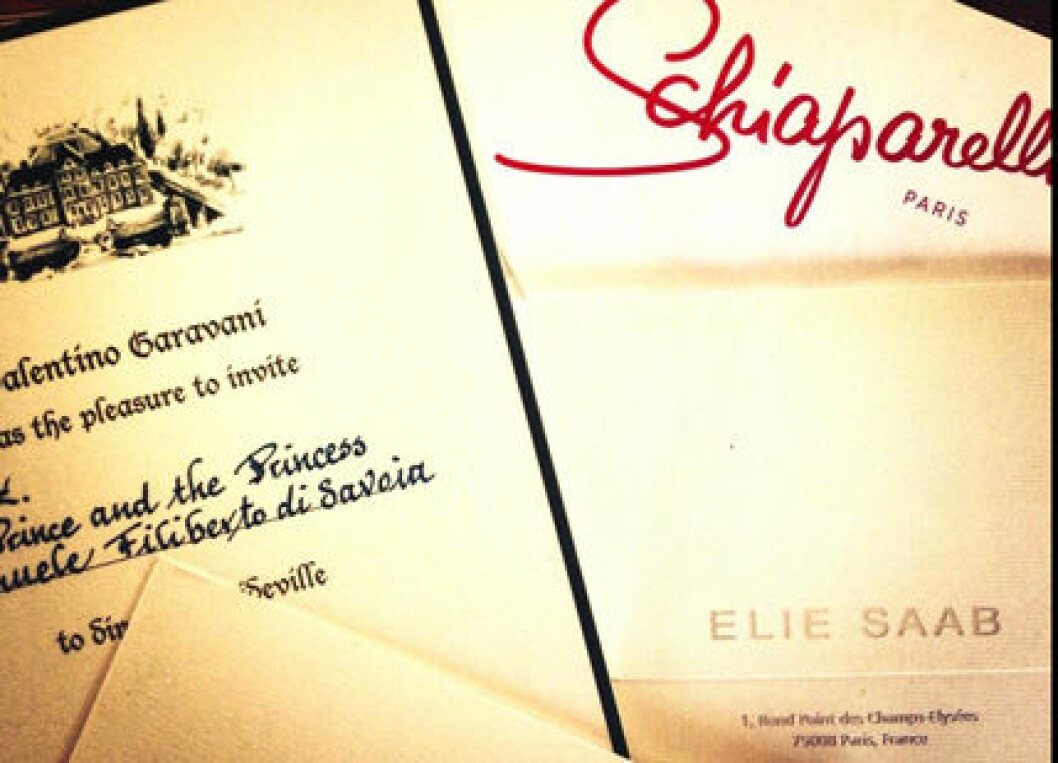 alentino Garavani
as the pleasure to invite
Prince and the Princess
nuele Filiberto di Savoia
to Din
Seville
Schiaparelli
PARIS
ELIE SAAB
1, Rond Point des Champs-Elysées
75008 Paris, France